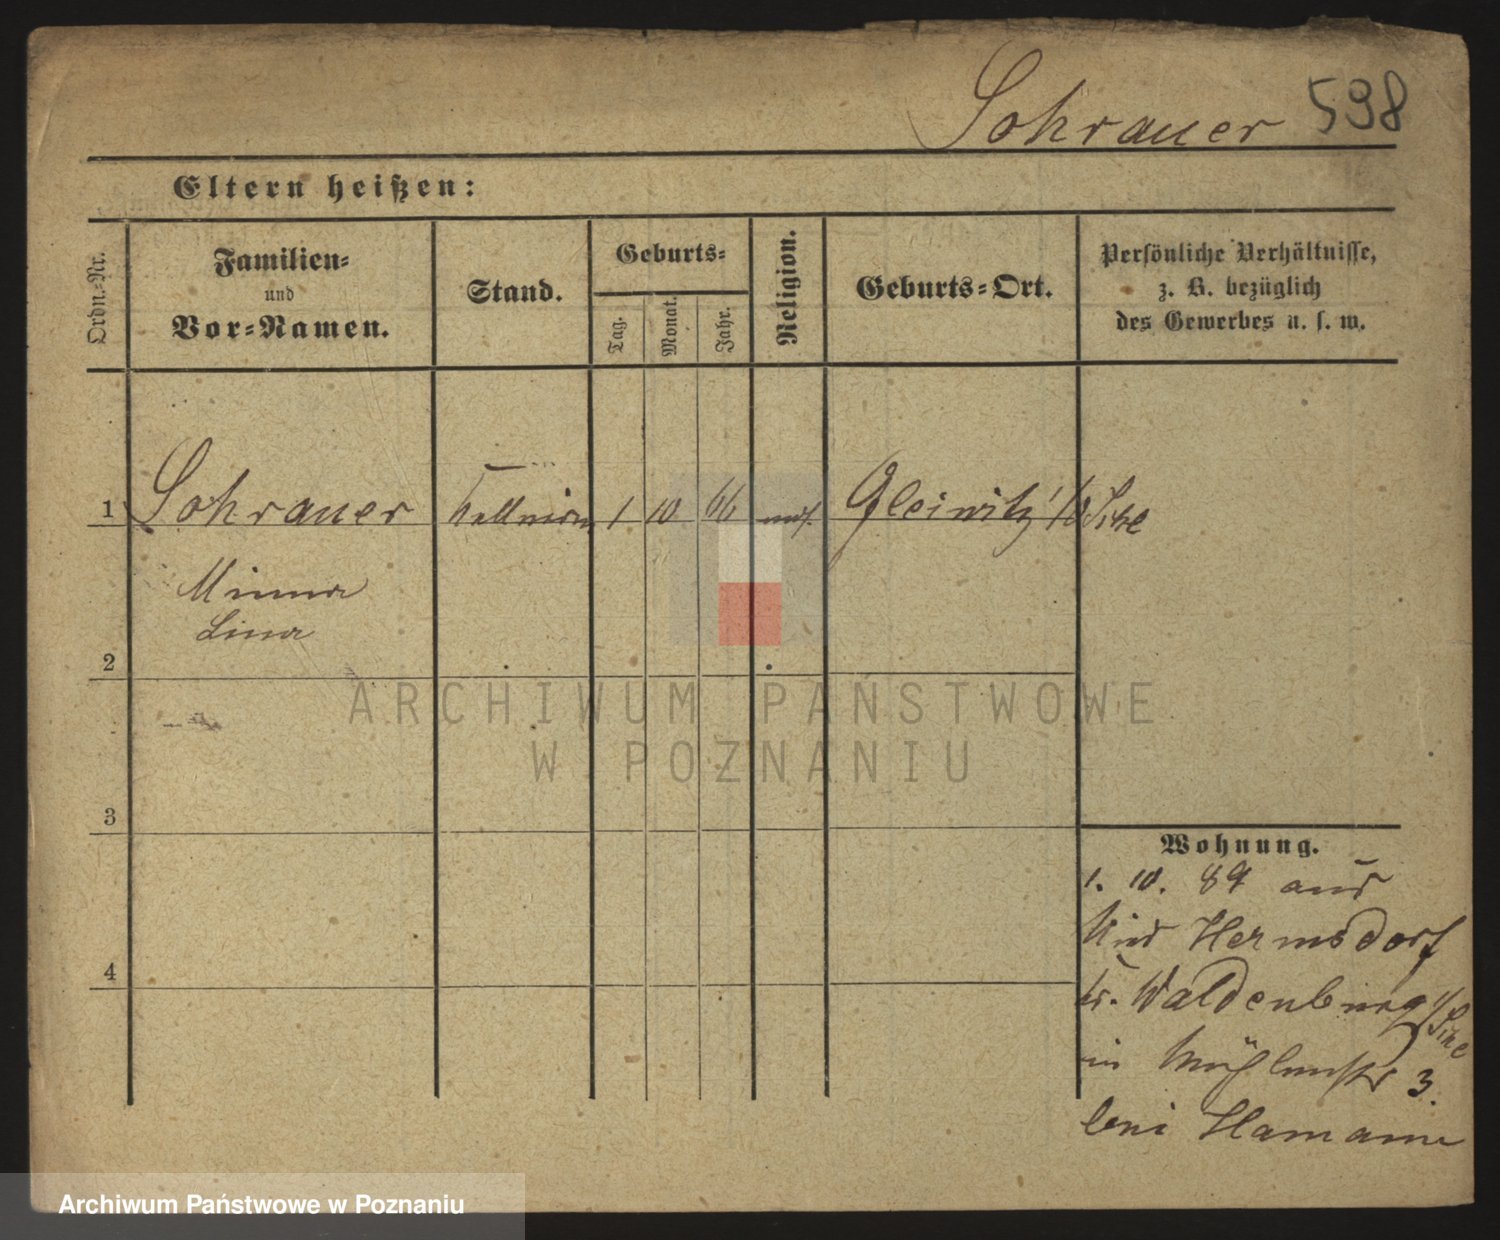 Sohrauer 598
Eltern heißen:
Ordn.-Nr.
Familien-
und
Vor-Namen.
Stand.
Geburts-
Tag.
Monat.
Jahr.
Religion.
Geburts-Ort.
Persönliche Verhältnisse,
z. B. bezüglich
des Gewerbes u. s. w.
1 Sohrauer Kellnerin 1 10 66 mos. Gleiwitz
Minna
Lina
2
3
4
Wohnung.
1. 10. 89 aus
Hermsdorf
Kr. Waldenburg
in Mühlenstr 3.
bei Hamann
ARCHIWUM PAŃSTWOWE
W POZNANIU
Archiwum Państwowe w Poznaniu